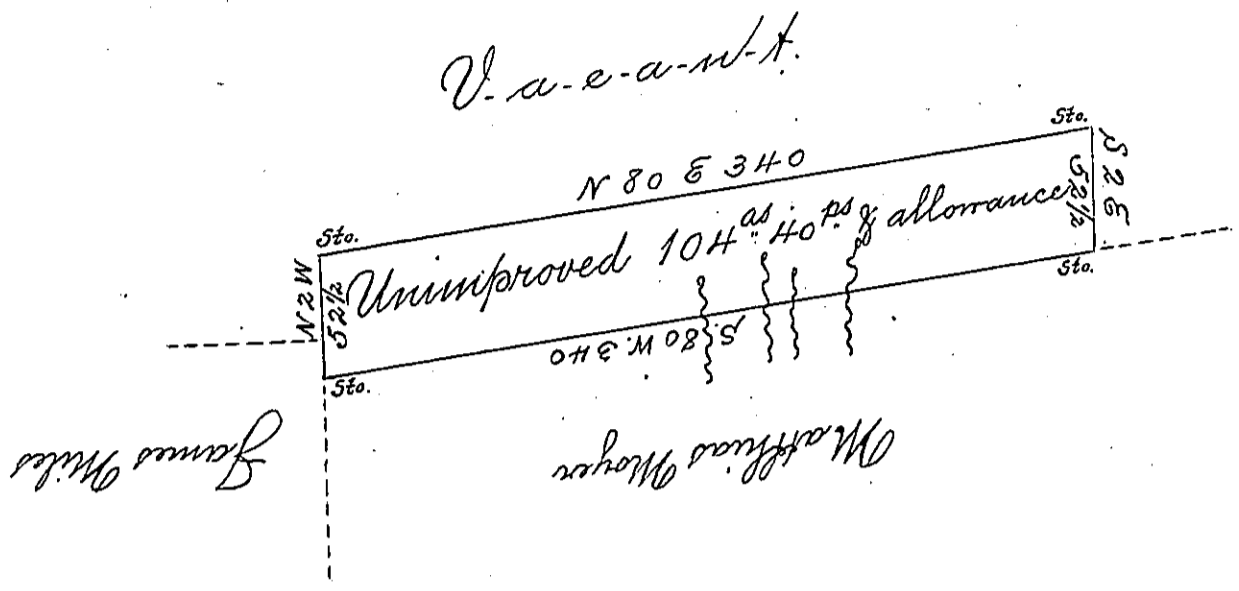 V-a-c-a-n-t.
Sto.
N 80 E 340
Sto.
S 2 E
52 1/2
Unimproved 104 as. 40 ps & allowance
N 2 W
52 1/2
Sto.
S. 80 W. 340
Sto.
James Miles
Matthias Moyer